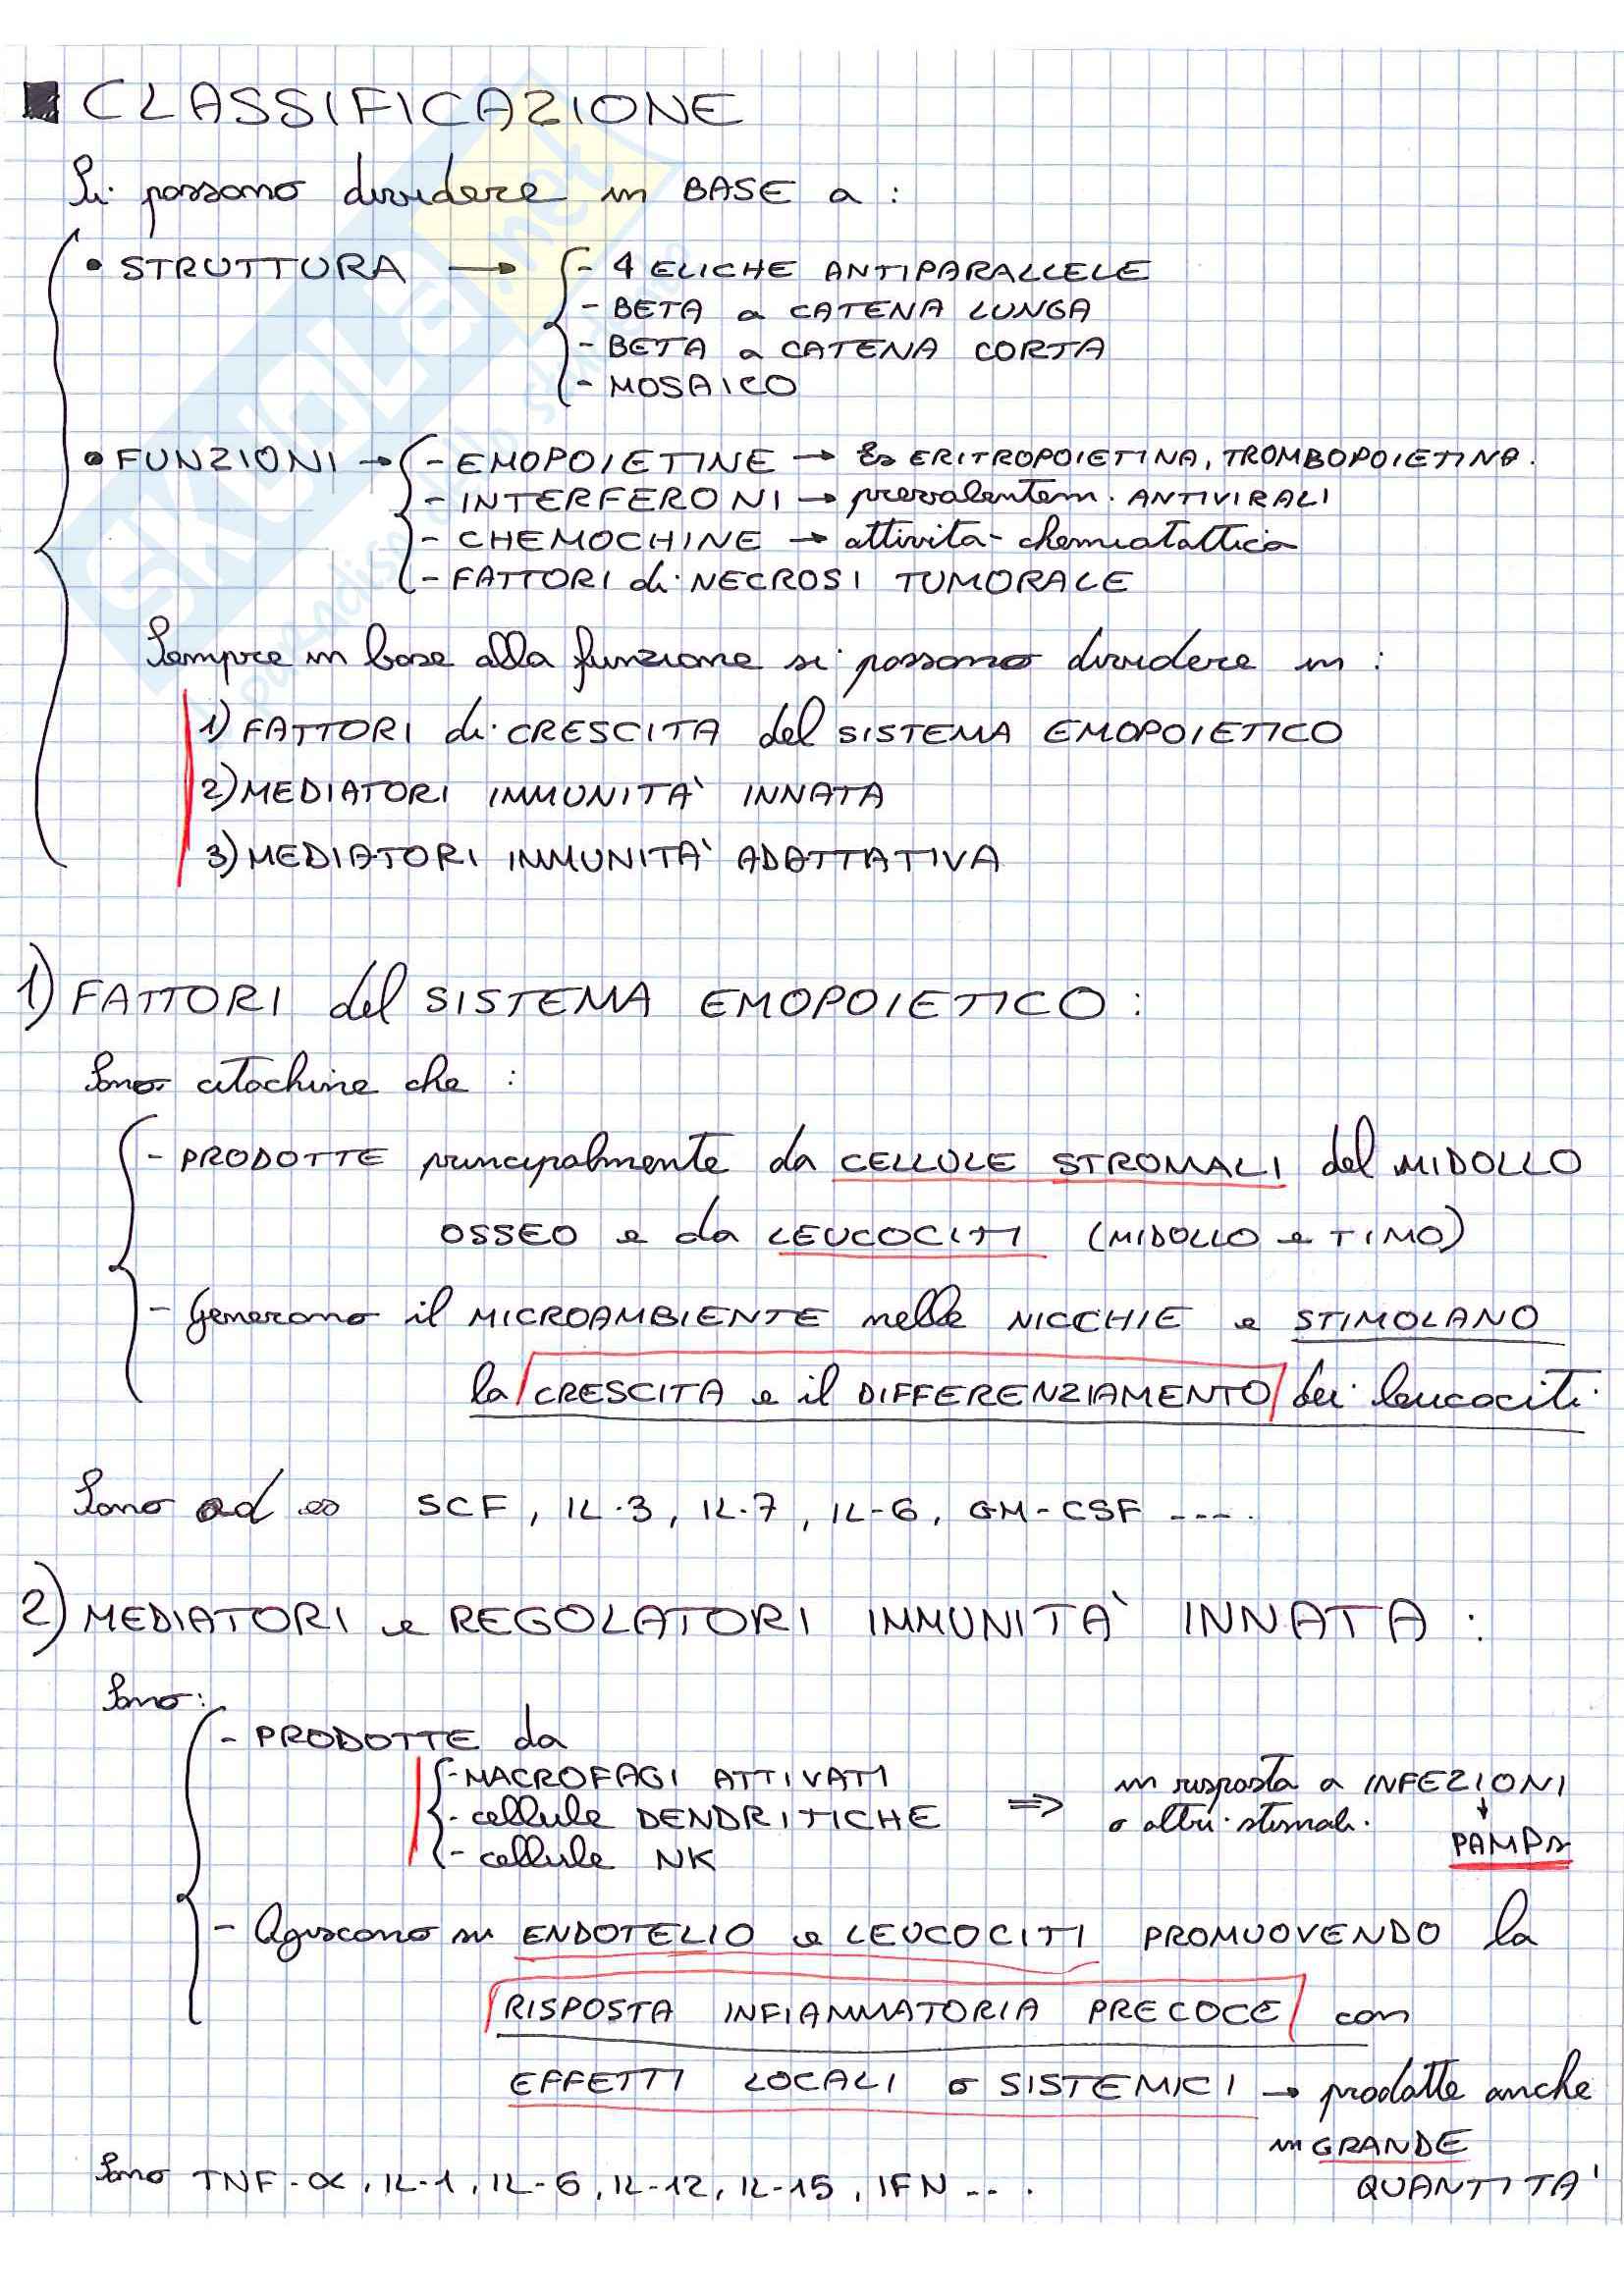 CLASSIFICAZIONE
Si possono dividere in BASE a :
• STRUTTURA → - 4 ELICHE ANTIPARALLELE
- BETA a CATENA LUNGA
- BETA a CATENA CORTA
- MOSAICO
• FUNZIONI → - EMOPOIETINE → Es ERITROPOIETINA, TROMBOPOIETINA.
- INTERFERONI → prevalentem. ANTIVIRALI
- CHEMOCHINE → attività chemiotattica
- FATTORI di NECROSI TUMORALE
Sempre in base alla funzione si possono dividere in :
1) FATTORI di CRESCITA del SISTEMA EMOPOIETICO
2) MEDIATORI IMMUNITA' INNATA
3) MEDIATORI IMMUNITA' ADATTATIVA
1) FATTORI del SISTEMA EMOPOIETICO :
Sono citochine che :
- PRODOTTE principalmente da CELLULE STROMALI del MIDOLLO
OSSEO e da LEUCOCITI (MIDOLLO e TIMO)
- Generano il MICROAMBIENTE nelle NICCHIE e STIMOLANO
la CRESCITA e il DIFFERENZIAMENTO dei leucociti
Sono ad es SCF, IL-3, IL-7, IL-6, GM-CSF ----.
2) MEDIATORI e REGOLATORI IMMUNITA' INNATA :
Sono:
- PRODOTTE da
- MACROFAGI ATTIVATI ⇒ in risposta a INFEZIONI
- cellule DENDRITICHE o altri stimoli. ↓
- cellule NK PAMPs
- Agiscono su ENDOTELIO e LEUCOCITI PROMUOVENDO la
RISPOSTA INFIAMMATORIA PRECOCE con
EFFETTI LOCALI o SISTEMICI → prodotte anche
in GRANDE
QUANTITA'
Sono TNF-α, IL-1, IL-6, IL-12, IL-15, IFN -- .
SKUOLA.net